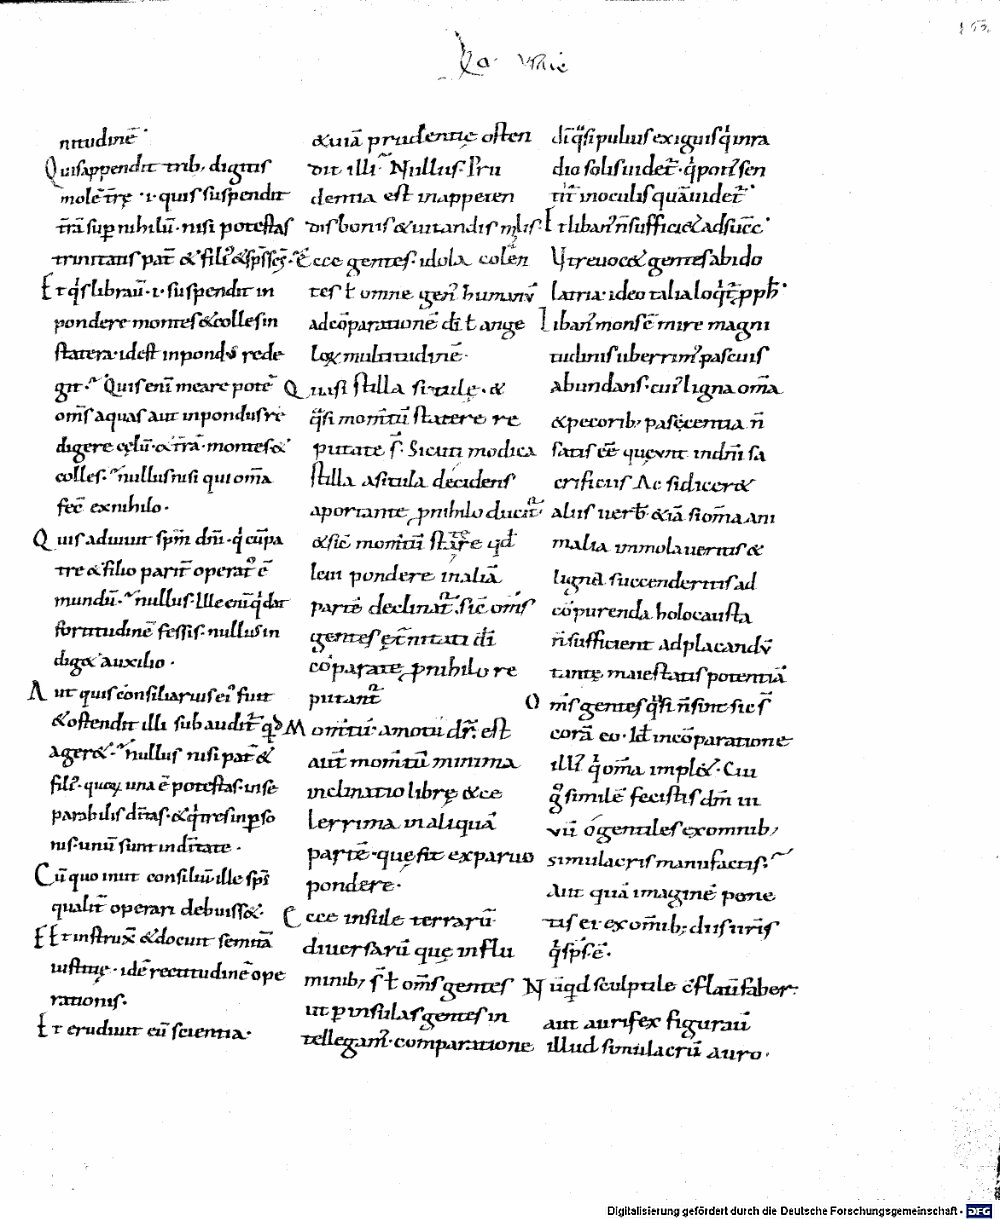 153.
nitudinē·
Quis appendit trib; digitis
molē t̄rę ·i· quis suspendit
t̄rā sup nihilū· nisi potestas
trinitatis pat̄
Et q̇s librau̅·i· suspendit in
pondere montes & colles in
statera· id est in pondus rede
git·~ Quis eni̅ meare potē
om̅s aquas aut in pondus re
digere cęlū· & t̄rā· montes &
colles·~ nullus nisi qui om̅a
fec̄ ex nihilo·
Quis adiuuit sp̅m dn̅i·
tre & filio parit̄ operat᷒ ē
mundū·~ nullus· Ille eni̅ q̇ dat
fortitudinē fessis· nullus in
dig& auxilio·
Aut quis consiliarius ei᷒ fuit
& ostendit illi subaudit̄ qd
ager&·~ nullus nisi pat̄ &
fili᷒· una ē potestas· inse
parabilis
nis· unū sunt in
Cū quo iniit consiliū ille sp̅s
qualit̄ operari debuiss&·
Et instrux̄ & docuit semitā
iustitię· idē rectitudinē ope
rationis·
Et erudiuit eū scientia·
& uiā prudentię osten
dit illi·~ Nullus· Pru
dentia est in appeten
dis bonis & uitandis malis·
Ecce gentes· idola colen
tes ł omne gen᷒ humanū
ad cōparationē di̅ ł ange
loꝝ multitudinē·
Quasi stilla situlę· &
q̅si momtū staterę re
putatę s̄· Sicuti modica
stilla a situla decidens
a portante ꝓ nihilo ducit᷒·
& sic̄ momtū
lem pondere in aliā
partē declinat᷒· sic̄ om̅s
gentes ęt̄nitati di̅
cōparatę ꝓ nihilo re
putant᷒
Momtū· a motu dr̄· est
aut̄ momtū minima
inclinatio librę & ce
lerrima in aliquā
partē· quę fit ex paruo
pondere·
Ecce insulę terrarū
diuersarū quę in flu
minib; s̄ ł om̅s gentes
ut p insulas gentes in
tellegam᷒· comparatione
di̅ q̅si puluis exiguus q̇ in ra
dio solis uidet̄· q̇ port᷒ sen
tit̄ in oculis quā uidet᷒·
Et liban᷒ n̄ sufficiet ad succ̄·
Vt reuoc& gentes ab ido
latria· ideo talia loq̇t̄ ꝓph᷒·
Liban᷒ mons ē mirę magni
tudinis uberrim᷒ pascuis
abundans· cui᷒ ligna om̅a
& pecorib; pascentia n̄
satis ēē queunt in dn̅i sa
crificiis Ac si dicer&
alus uerb̄ & iā si om̅a ani
malia immolaueritis &
ligna succenderitis ad
cōpurenda holocausta
n̄ sufficient ad placandū
tantę maiestatis potentiā
Om̅s gentes q̅si n̄ sint sic s̄
corā eo· Id in cōparatione
illi᷒ q̇ om̅a impl&· Cui
g̊ similē fecistis dm̅ ui
uū o gentiles ex omnib;
simulacris manufactis·~
Aut quā imaginē pone
tis ei ex om̅ib; diis uris
q̇ sps ē·
Nūqd sculptile cflauit faber·
aut aurifex figurauit
illud simulacrū auro·
Digitalisierung gefördert durch die Deutsche Forschungsgemeinschaft - DFG